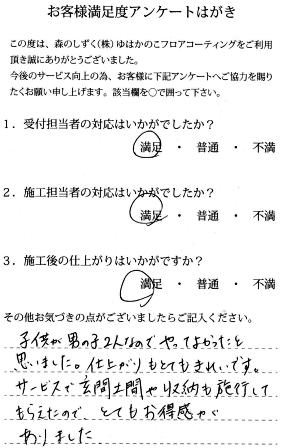 お客様満足度アンケートはがき
この度は、森のしずく(株)ゆはかのこフロアコーティングをご利用
頂き誠にありがとうございました。
今後のサービス向上の為、お客様に下記アンケートへご協力を賜り
たくお願い申し上げます。該当欄を○で囲って下さい。
1．受付担当者の対応はいかがでしたか？
満足 ・ 普通 ・ 不満
2．施工担当者の対応はいかがでしたか？
満足 ・ 普通 ・ 不満
3．施工後の仕上がりはいかがですか？
満足 ・ 普通 ・ 不満
その他お気づきの点がございましたらご記入ください。
子供が男の子2人なのでやってよかったと
思いました。仕上がりもとてもきれいです。
サービスで玄関土間や収納も施行して
もらえたので、とてもお得感が
ありました